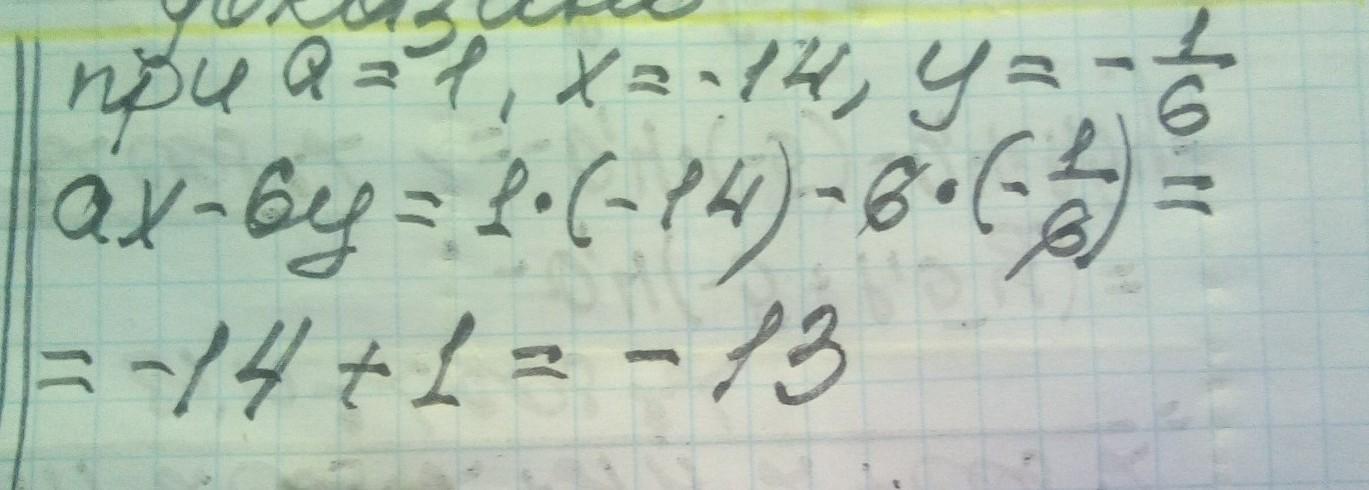 при a = 1, x = -14, y = -1/6
ax - 6y = 1·(-14) - 6·(-1/6) =
= -14 + 1 = -13